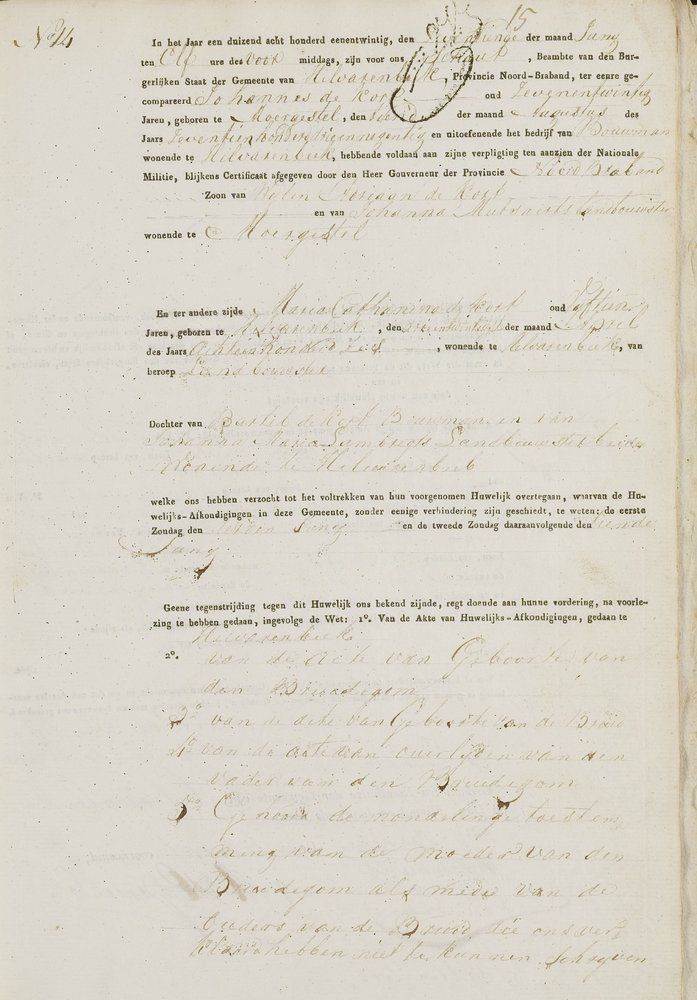 No 14
15
In het Jaar een duizend acht honderd eenentwintig, den der maand Juny
ten Elf ure des Voor middags, zijn voor ons Schout, Beambte van den Bur-
gerlijken Staat der Gemeente van Hilvarenbeek, Provincie Noord-Braband, ter eenre ge-
compareerd Johannes de Kort oud Zevenentwintig
Jaren, geboren te Moergestel, den der maand Augustus des
Jaars Zeventien honderd drieennegentig en uitoefenende het bedrijf van Bouwman
wonende te Hilvarenbeek, hebbende voldaan aan zijne verpligting ten aanzien der Nationale
Militie, blijkens Certificaat afgegeven door den Heer Gouverneur der Provincie Noord Braband
Zoon van Wylen Adriaan de Kort
en van Johanna Landbouwster
wonende te Moergestel
En ter andere zijde Maria Catharina de Kort oud Vyftien
Jaren, geboren te Hilvarenbeek, den der maand April
des Jaars Achtien honderd Zes, wonende te Hilvarenbeek, van
beroep Landbouwster
Dochter van Bartel de Kort Bouwman en van
Johanna Maria Lambregts Landbouwster beide
Wonende te Hilvarenbeek
welke ons hebben verzocht tot het voltrekken van hun voorgenomen Huwelijk overtegaan, waarvan de Hu-
welijks-Afkondigingen in deze Gemeente, zonder eenige verhindering zijn geschiedt, te weten: de eerste
Zondag den Juny en de tweede Zondag daaraanvolgende den tiende
Juny
Geene tegenstrijding tegen dit Huwelijk ons bekend zijnde, regt doende aan hunne vordering, na voorle-
zing te hebben gedaan, ingevolge de Wet: 1o. Van de Akte van Huwelijks-Afkondigingen, gedaan te
Hilvarenbeek
2o. van de acte van Geboorte van
den Bruidegom
3o van de acte van Geboorte van de Bruid
4o van de acte van overlyden van den
Vader van den Bruidegom
5o Gehoord de mondelinge toestem
ming van de moeder van den
Bruidegom als mede van de
Ouders van de Bruid die ons ver
klaard hebben niet te kunnen Schryven